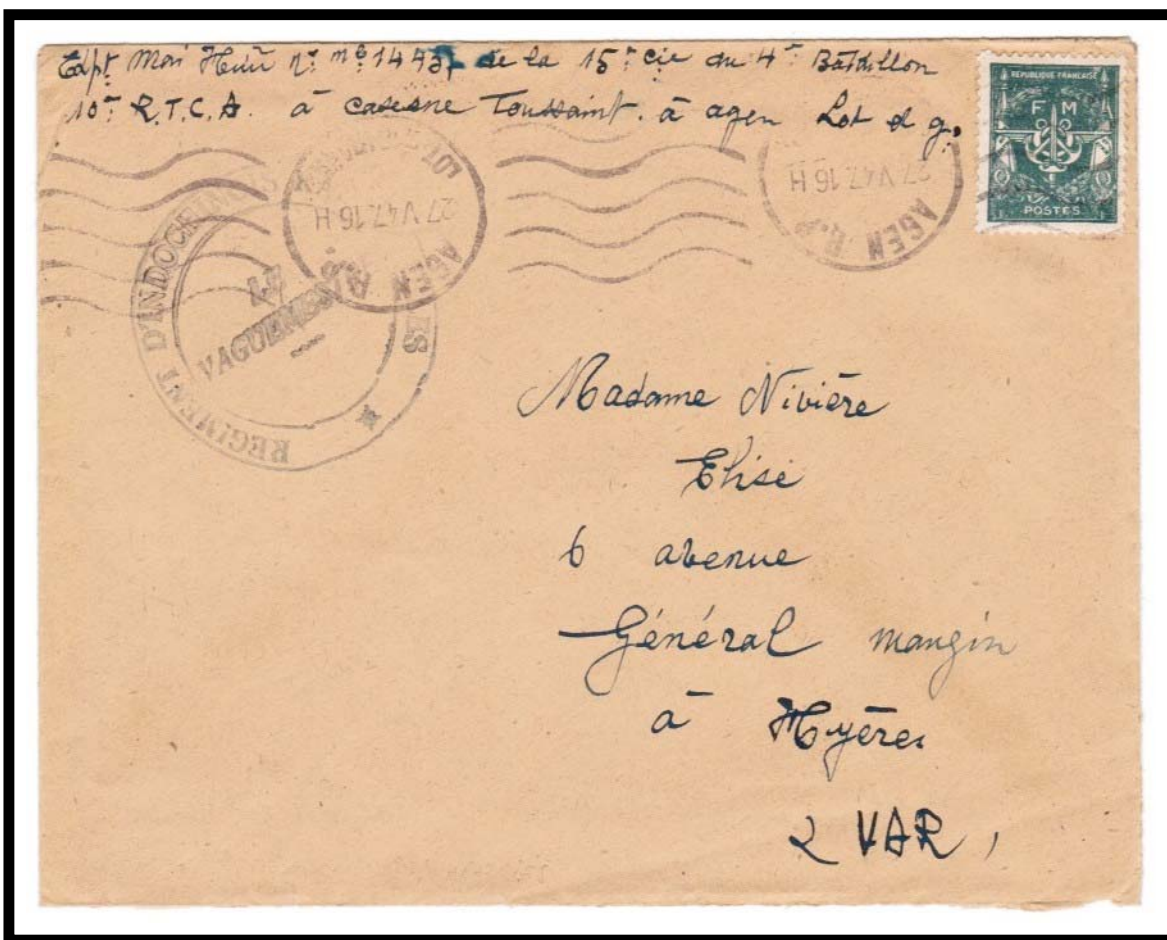 Edpt Moi Hữu nº mle 1473 de la 15e cie du 4e Bataillon
10e R.T.C.A. à caserne Toussaint. à agen Lot et g.
REPUBLIQUE FRANÇAISE
F M
POSTES
27 V47.16 H
AGEN R.P.
LOT
27 V47.16 H
AGEN R.P
REGIMENT D'INDOCHINOIS
LE
VAGUEMESTRE
Madame Nivière
Elise
6 avenue
Général mangin
à Hyères
VAR